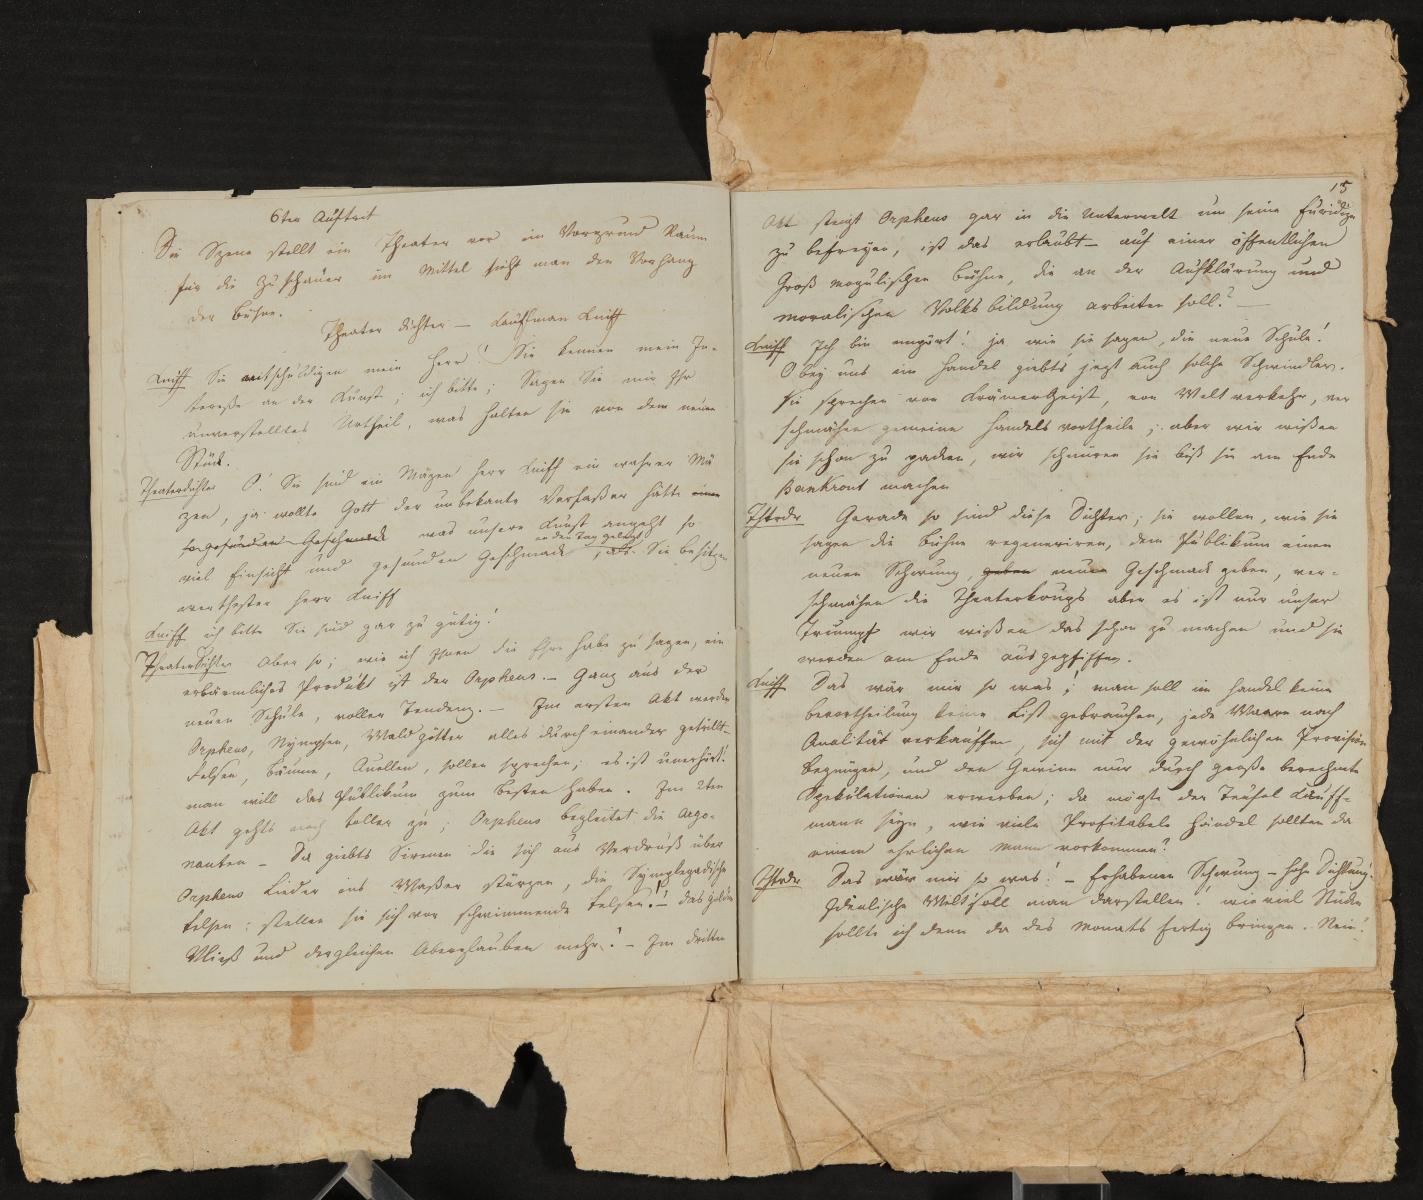 6ter Auftrit
Die Szene stellt ein Theater vor im Vorgrund Raum
für die Zuschauer im Mittel sieht man den Vorhang
der Bühne.
Theater dichter — Kaufman Kniff
Kniff Sie entschuldigen mein Herr! Sie kennen mein In-
tereße an der Kunst; ich bitte, Sagen Sie mir Ihr
unverstelltes Urtheil, was halten sie von dem neuen
Stück.
Theaterdichter O! Sie sind ein Mäzen Herr Kniff ein wahrer Mä
zen, ja wollte Gott der unbekante Verfaßer hätte einen
so gesunden Geschmack was unsere Kunst angeht so
an den Tag gelegt
viel Einsicht und gesunden Geschmack, als Sie besitzen
werthester Herr Kniff
Kniff ich bitte Sie sind gar zu gütig!
Theaterdichter Aber so; wie ich Ihnen die Ehre habe zu sagen, ein
erbärmliches Produkt ist der Orpheus. — Ganz aus der
neuen Schule, voller Tendenz. — Im ersten Akt werden
Orpheus, Nÿmphen, Waldgötter alles durcheinander getrillt —
Felsen, Bäume, Quellen, sollen sprechen; es ist unerhört!
man will das Publikum zum besten haben. Im 2ten
Akt gehts noch toller zu; Orpheus begleitet die Argo-
nauten — Da giebts Sirenen die sich aus Verdruß über
Orpheus Lieder ins Waßer stürzen, die Sÿmplegadische
Felsen: stellen sie sich vor schwimmende Felsen! — das goldne
Vließ und dergleichen Aberglauben mehr! — Im dritten
15
Akt steigt Orpheus gar in die Unterwelt um seine Euridize
zu befreyen, ist das erlaubt — auf einer öffentlichen
Groß mogulischen Bühne, die an der Aufklärung und
moralischen Volksbildung arbeiten soll? —
Kniff Ich bin empört! ja wie sie sagen, die neue Schule!
O beÿ uns im Handel giebts jezt auch solche Schwindler.
Sie sprechen von Krämergeist, von Weltverkehr, ver
schmähen gemeine Handelsvortheile; aber wir wißen
sie schon zu packen, wir schnüren sie biß sie am Ende
Bankrout machen
Thtrdr Gerade so sind diese Dichter; sie wollen, wie sie
sagen die Bühne regeneriren, dem Publikum einen
neuen Schwung, geben neuen Geschmack geben, ver-
schmähen die Theaterkoups aber es ist nur unser
Triumpf wir wißen das schon zu machen und sie
werden am Ende ausgepfiffen.
Kniff Das wär mir so was; man soll im Handel keine
bevortheilung keine List gebrauchen, jede Waare nach
Qualität verkauffen, sich mit der gewöhnlichen Provision
begnügen, und den Gewinn nur durch große berechnete
Spekulationen erwerben; da mögte der Teufel Kauff-
mann seÿn, wie viele Profitabele Händel sollten da
einem ehrlichen Mann vorkommen?
Thtrdr Das wär mir so was! — Erhabenen Schwung — hohe Dichtung!
Idealische Welt soll man darstellen! wieviel Stücke
sollte ich denn da des Monats fertig bringen. Nein!